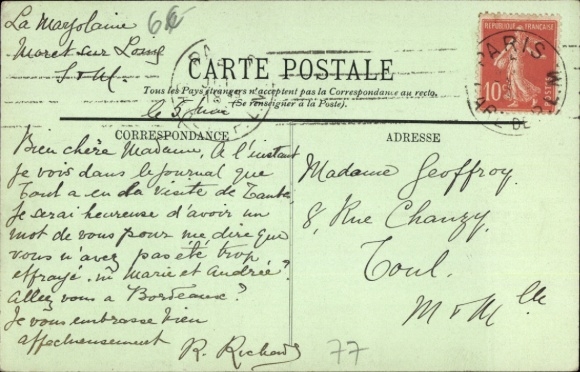 La Marjolaine
Moret sur Loing
S & M.
CARTE POSTALE
Tous les Pays étrangers n'acceptent pas la Correspondance au recto.
(Se renseigner à la Poste).
le 5 Mai
CORRESPONDANCE
Bien chère Madame, A l'instant
je vois dans le journal que
Toul a eu la visite de
Je serai heureuse d'avoir un
mot de vous pour me dire que
vous n'avez pas été trop
effrayé. ni Marie et Andrée?
Allez vous a Bordeaux?
Je vous embrasse bien
affectueusement
R. Richard
ADRESSE
Madame Geoffroy.
8, Rue Chanzy.
Toul.
M & Mlle
77
PARIS
GARE DE
10
POSTES